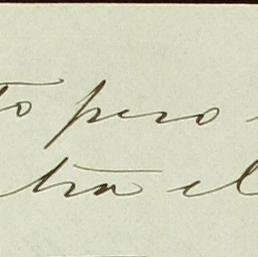 to pero
tra el